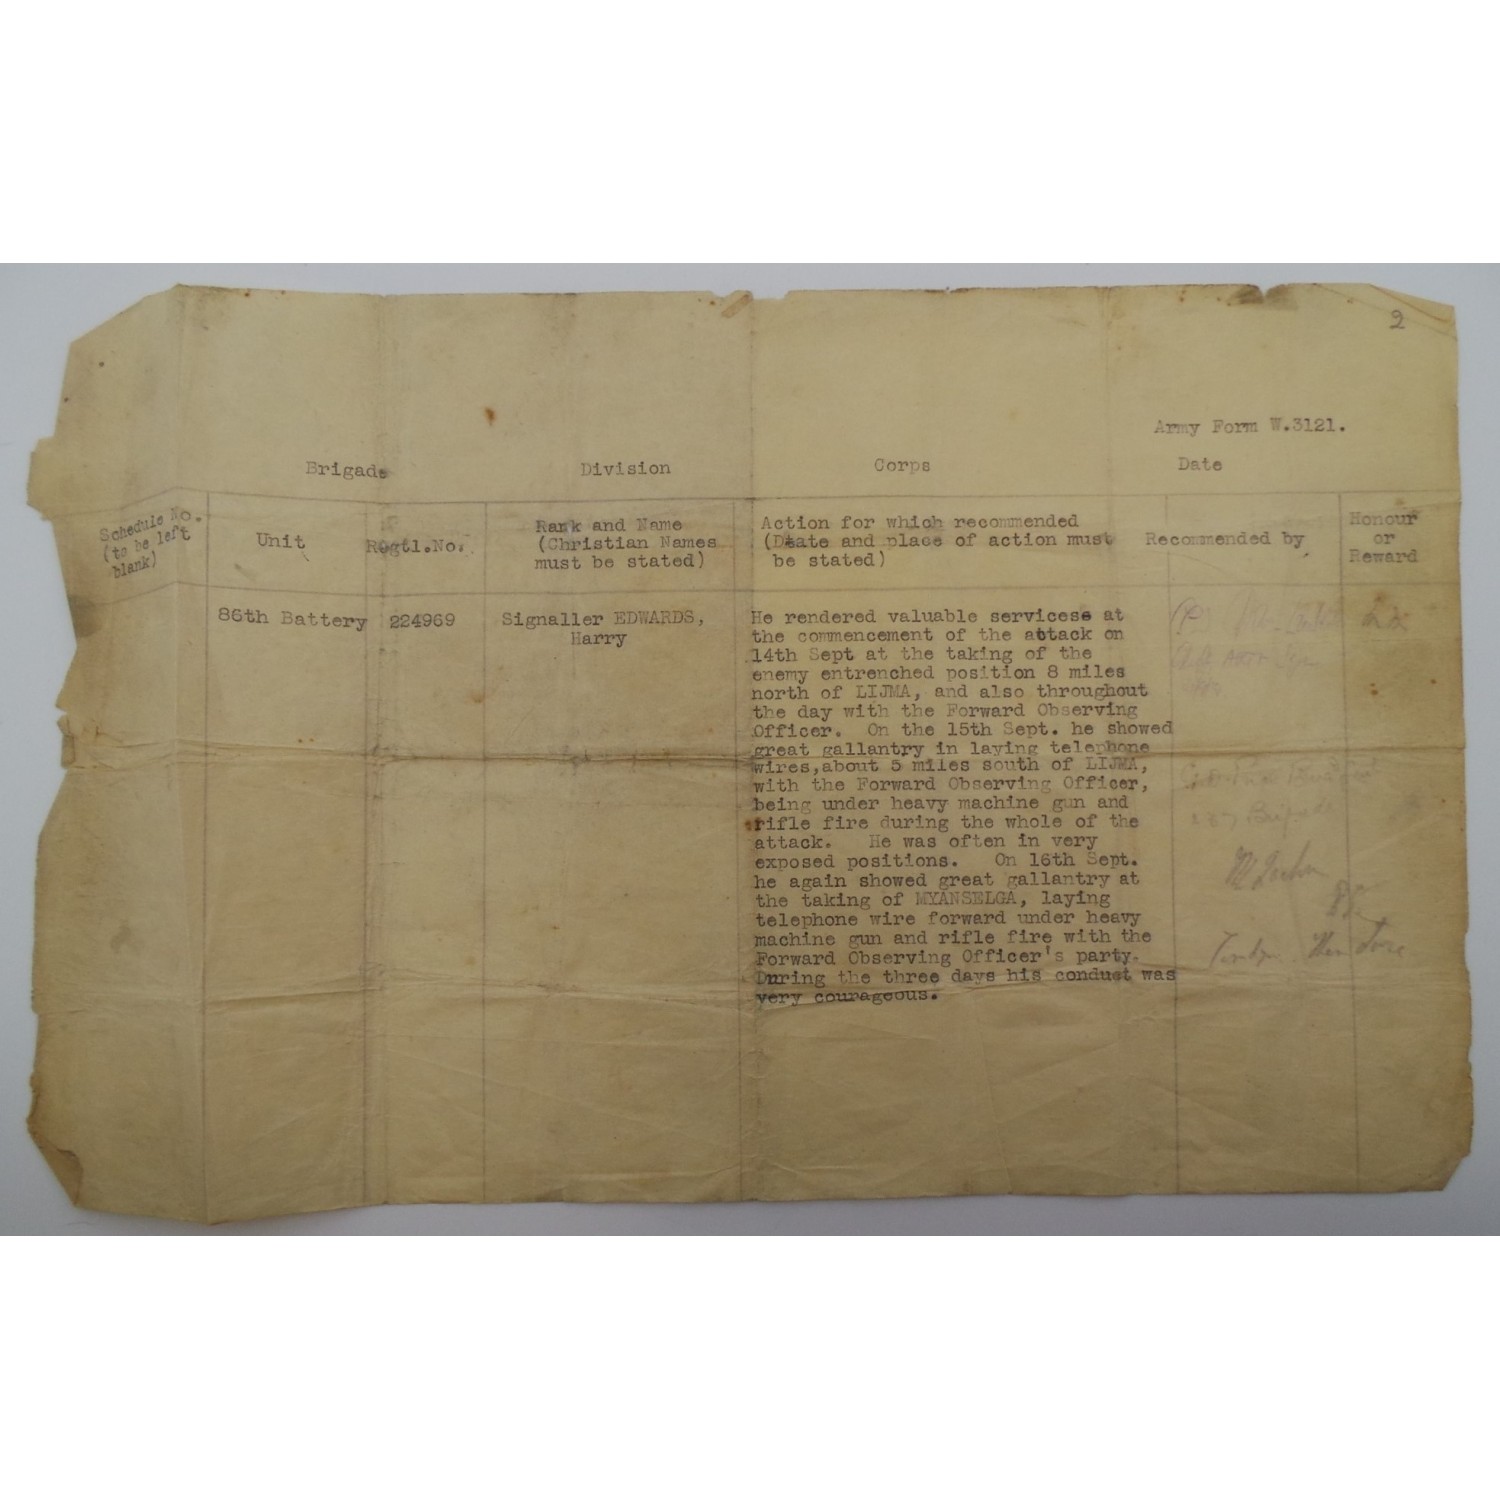 2
Army Form W.3121.
Brigade Division Corps Date
Schedule No.
(to be left
blank)
Unit
Regtl.No.
Rank and Name
(Christian Names
must be stated)
Action for which recommended
(Dtate and place of action must
be stated)
Recommended by
Honour
or
Reward
86th Battery
224969
Signaller EDWARDS,
Harry
He rendered valuable services at
the commencement of the attack on
14th Sept at the taking of the
enemy entrenched position 8 miles
north of LIJMA, and also throughout
the day with the Forward Observing
Officer. On the 15th Sept. he showed
great gallantry in laying telephone
wires,about 5 miles south of LIJMA,
with the Forward Observing Officer,
being under heavy machine gun and
rifle fire during the whole of the
attack. He was often in very
exposed positions. On 16th Sept.
he again showed great gallantry at
the taking of MYANSELGA, laying
telephone wire forward under heavy
machine gun and rifle fire with the
Forward Observing Officer's party.
During the three days his conduct was
very courageous.
Brigade